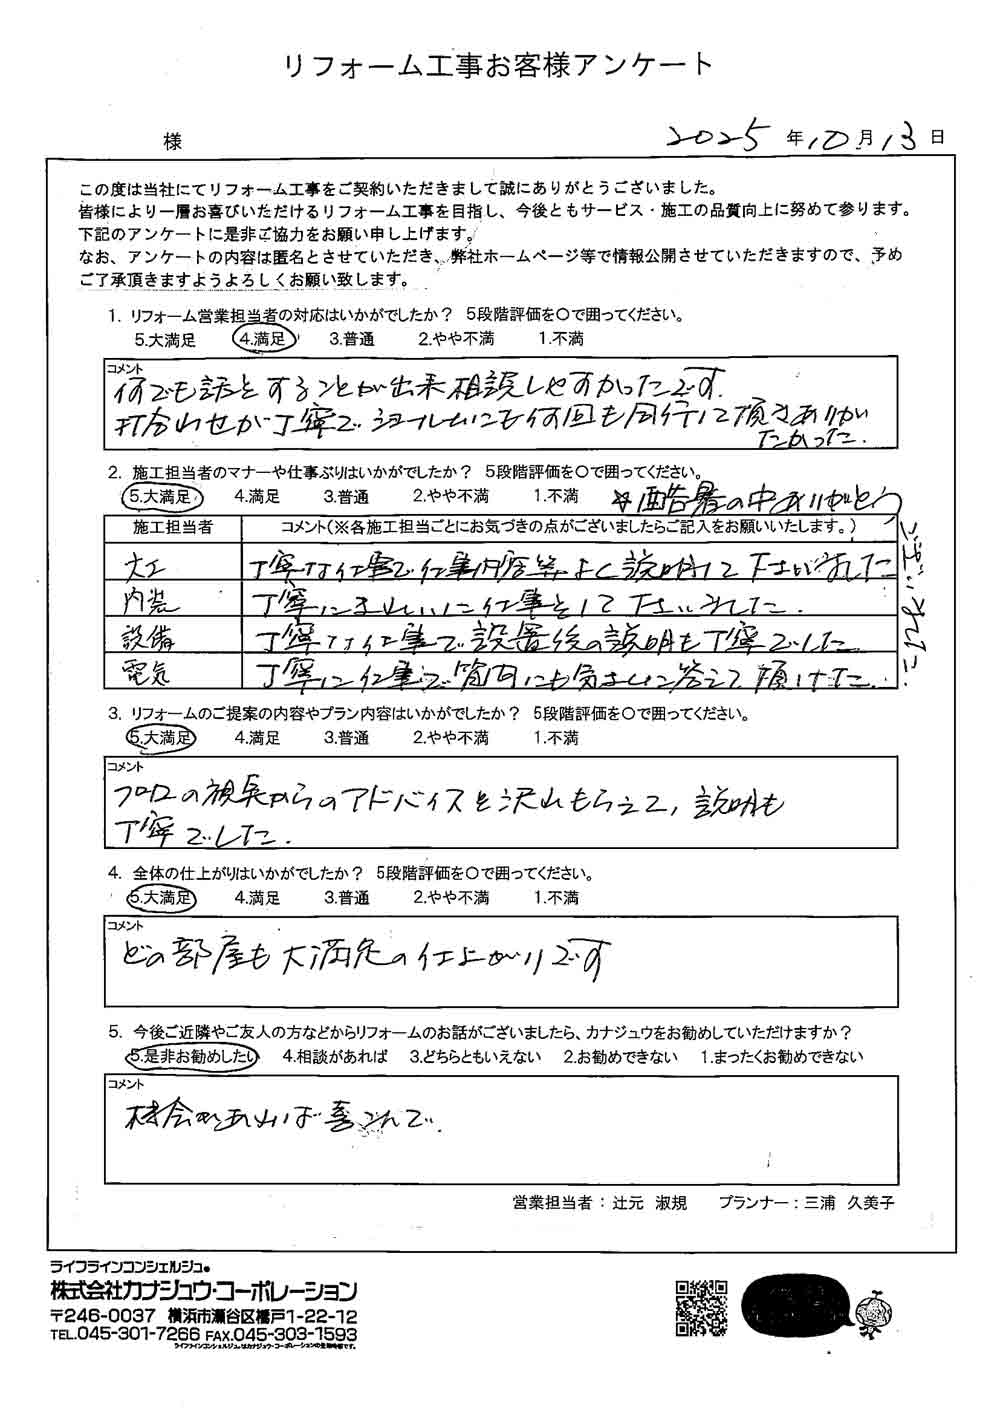 リフォーム工事お客様アンケート
様 2025年10月13日
この度は当社にてリフォーム工事をご契約いただきまして誠にありがとうございました。
皆様により一層お喜びいただけるリフォーム工事を目指し、今後ともサービス・施工の品質向上に努めて参ります。
下記のアンケートに是非ご協力をお願い申し上げます。
なお、アンケートの内容は匿名とさせていただき、弊社ホームページ等で情報公開させていただきますので、予め
ご了承頂きますようよろしくお願い致します。
1. リフォーム営業担当者の対応はいかがでしたか? 5段階評価を〇で囲ってください。
5.大満足 4.満足 3.普通 2.やや不満 1.不満
コメント
何でも話をすることが出来相談しやすかったです.
打合わせが丁寧でショールームにも何回も同行して頂きありがい
たかった.
2. 施工担当者のマナーや仕事ぶりはいかがでしたか? 5段階評価を〇で囲ってください。
5.大満足 4.満足 3.普通 2.やや不満 1.不満
☆酷暑の中ありがとう
ございました.
施工担当者 コメント(※各施工担当ごとにお気づきの点がございましたらご記入をお願いいたします。)
大工 丁寧な仕事で仕事内容等よく説明して下さいました
内装 丁寧にきれいに仕事をして下さいました.
設備 丁寧な仕事で設置後の説明も丁寧でした
電気 丁寧に仕事で質問にも気さくに答えて頂けた.
3. リフォームのご提案の内容やプラン内容はいかがでしたか? 5段階評価を〇で囲ってください。
5.大満足 4.満足 3.普通 2.やや不満 1.不満
コメント
プロの視点からのアドバイスを沢山もらえて,説明も
丁寧でした.
4. 全体の仕上がりはいかがでしたか? 5段階評価を〇で囲ってください。
5.大満足 4.満足 3.普通 2.やや不満 1.不満
コメント
どの部屋も大満足の仕上がりです
5. 今後ご近隣やご友人の方などからリフォームのお話がございましたら、カナジュウをお勧めしていただけますか?
5.是非お勧めしたい 4.相談があれば 3.どちらともいえない 2.お勧めできない 1.まったくお勧めできない
コメント
機会があれば喜こんで.
営業担当者:辻元 淑規 プランナー:三浦 久美子
ライフラインコンシェルジュ。
株式会社カナジュウ・コーポレーション
〒246-0037 横浜市瀬谷区橋戸1-22-12
TEL.045-301-7266 FAX.045-303-1593
ライフラインコンシェルジュ。はカナジュウ・コーポレーションの登録商標です。